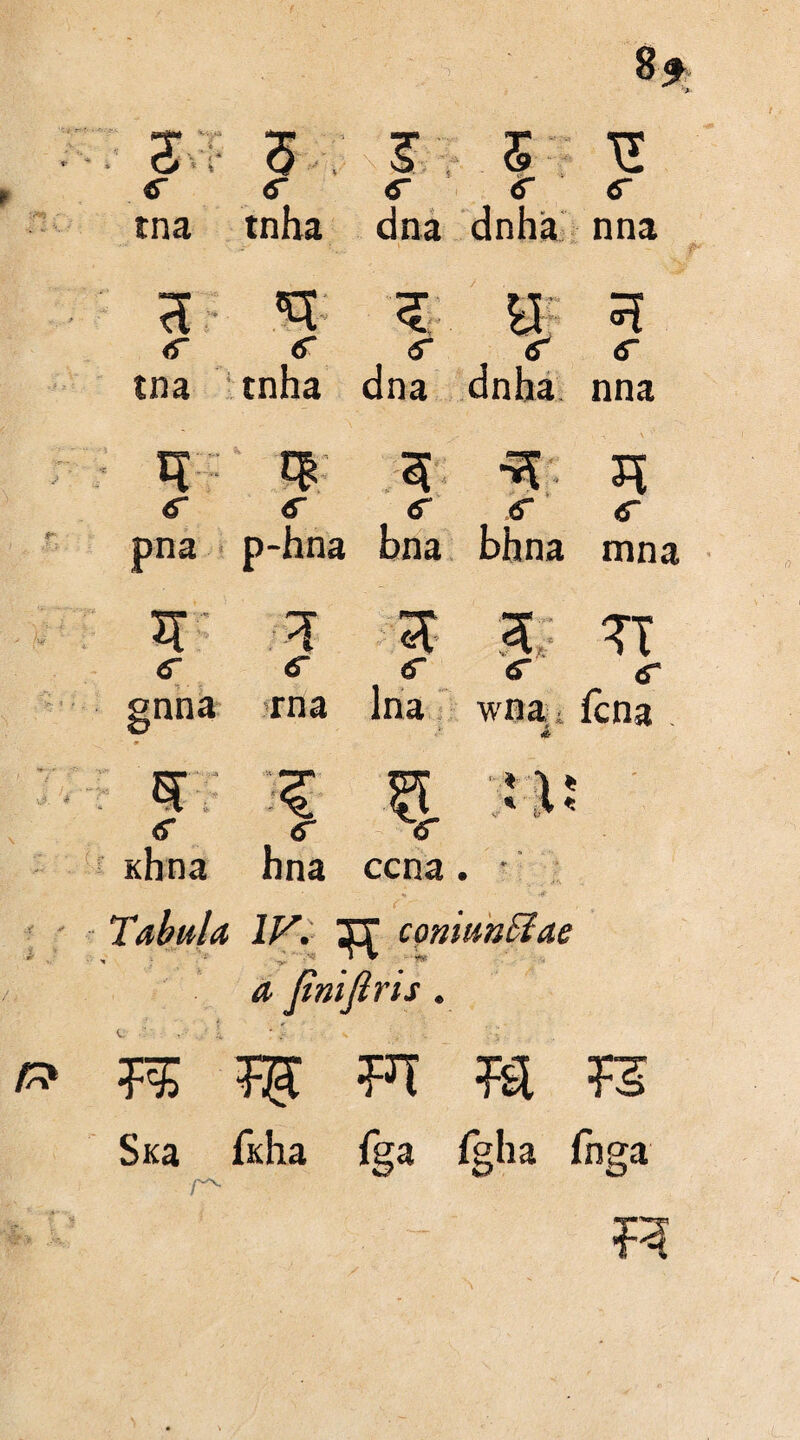 89
ट्न ठ्न ड्न ढ्न ण्न
tna tnha dna dnha nna
त्न थ्न द्न ध्न न्न
tna tnha dna dnha nna
प्न फ्न ब्न भ्न म्न
pna p-hna bna bhna mna
य्न र्न ल्न व्न श्न
gnna rna lna wna ſcna
ष्न ह्न क्ष्न
ĸhna hna ccna .
Tabula IV. स coniunctae
a ſiniſtris .
स्क स्ख स्ग स्घ स्ङ
Sĸa ſĸha ſga ſgha ſnga
स्च